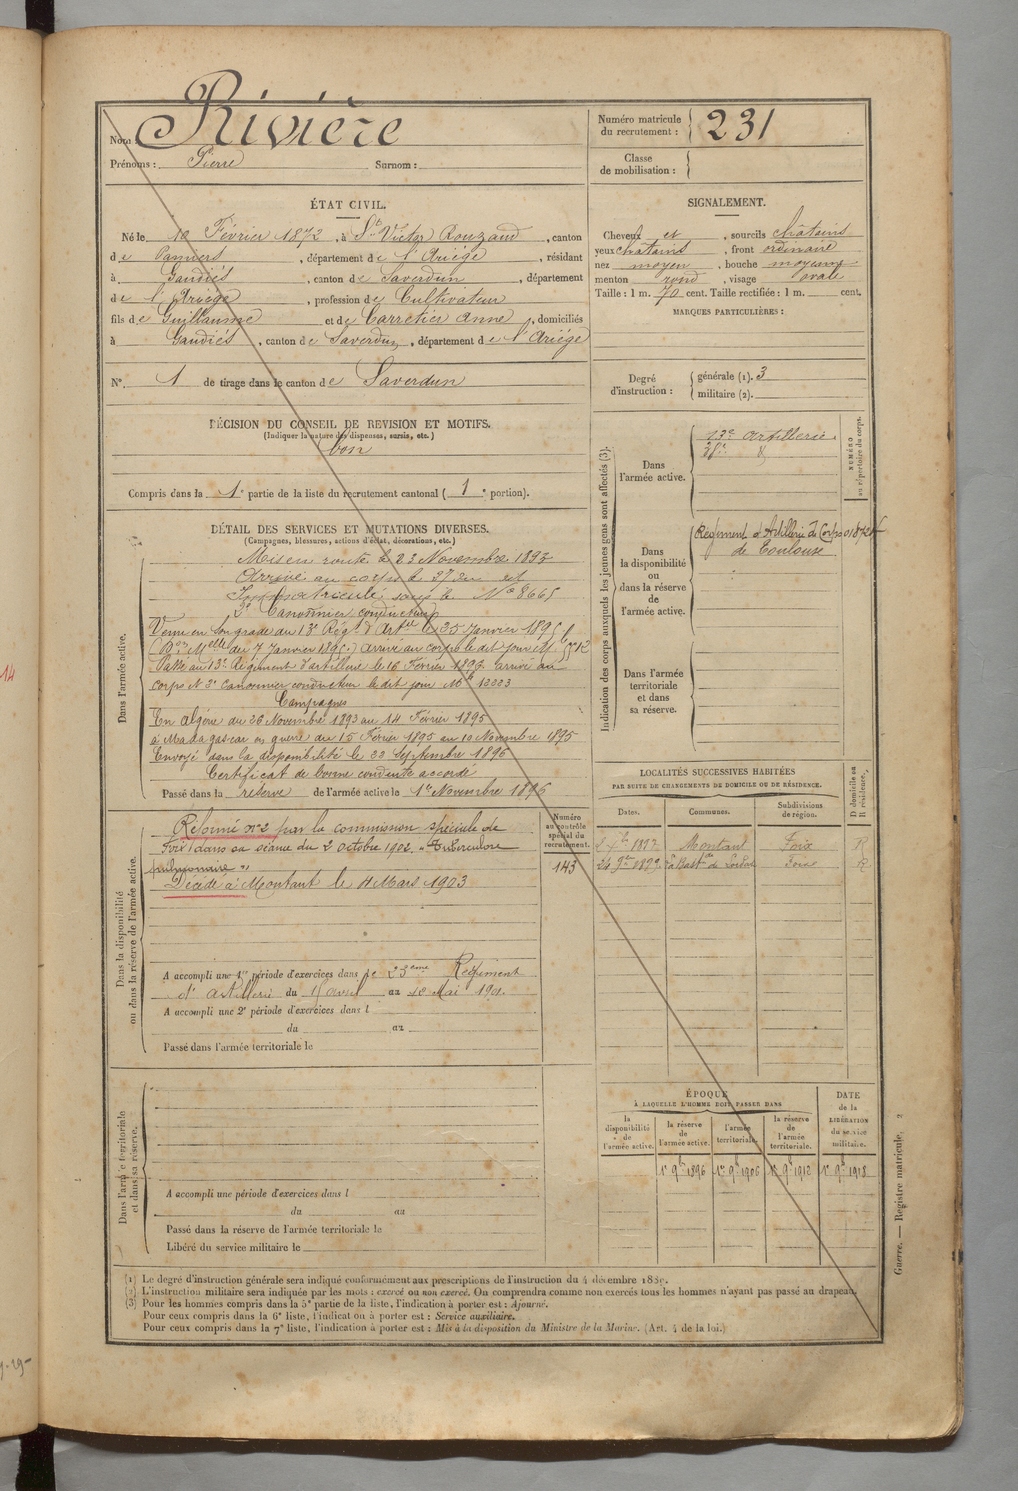 Nom : Rivière
Prénoms : Pierre Surnom :
Numéro matricule du recrutement : 231
Classe de mobilisation :
ÉTAT CIVIL.
Né le 10 Février 1872, à St Victor Rouzaud, canton
de Pamiers, département de l'Ariège, résidant
à Gaudiés, canton de Saverdun, département
de l'Ariège, profession de Cultivateur
fils de Guillaume et de Carretier Anne, domiciliés
à Gaudiés, canton de Saverdun, département de l'Ariège
N°. 1 de tirage dans le canton de Saverdun
SIGNALEMENT.
Cheveux et , sourcils châtains
yeux châtains , front ordinaire
nez moyen , bouche moyenne
menton rond , visage ovale
Taille : 1 m. 70 cent. Taille rectifiée : 1 m. cent.
MARQUES PARTICULIÈRES :
Degré d'instruction : générale (1). 3
militaire (2).
DÉCISION DU CONSEIL DE REVISION ET MOTIFS.
(Indiquer la nature des dispenses, sursis, etc.)
bon
Compris dans la 1e partie de la liste du recrutement cantonal ( 1e portion).
DÉTAIL DES SERVICES ET MUTATIONS DIVERSES.
(Campagnes, blessures, actions d'éclat, décorations, etc.)
Dans l'armée active.
Mis en route le 23 Novembre 1893
Arrivé au corps le et
Immatriculé sous le No 8665
2e Canonnier conducteur
Venu en son grade du 13e Régt d'Artie le 25 Janvier 1895
(Don Melle du 7 Janvier 1895.) arrivé au corps le dit jour
Passé au 13e Régiment d'artillerie le 16 Février arrivé au
corps 2e Canonnier conducteur le dit jour Mle
Campagnes
En Algérie du 26 Novembre 1893 au 14 Février 1895
à Madagascar en guerre du 15 Février 1895 au 10 Novembre 1895
Envoyé dans la disponibilité le 22 Septembre 1896
Certificat de bonne conduite accordé
Passé dans la réserve de l'armée active le 1er Novembre 1896
Indication des corps auxquels les jeunes gens sont affectés (3).
NUMÉRO au répertoire du corps.
Dans l'armée active.
13e Artillerie
38e
Dans la disponibilité ou dans la réserve de l'armée active.
Régiment d'Artillerie de Corps
de Toulouse
Dans l'armée territoriale et dans sa réserve.
LOCALITÉS SUCCESSIVES HABITÉES
PAR SUITE DE CHANGEMENTS DE DOMICILE OU DE RÉSIDENCE.
Dates. Communes. Subdivisions de région. D domicile ou R résidence.
Montaut Foix R
24 9bre Foix R
Dans la disponibilité ou dans la réserve de l'armée active.
Numéro au contrôle spécial du recrutement.
143
Réformé no 2 par la commission spéciale de
Foix dans sa séance du 2 octobre 1902. "Tuberculose
pulmonaire"
Décédé à Montaut le 4 Mars 1903
A accompli une 1re période d'exercices dans le 23eme Régiment
d'artillerie du avril au Mai 1901.
A accompli une 2e période d'exercices dans l
du au
Passé dans l'armée territoriale le
Dans l'armée territoriale et dans sa réserve.
A accompli une période d'exercices dans l
du au
Passé dans la réserve de l'armée territoriale le
Libéré du service militaire le
ÉPOQUE
À LAQUELLE L'HOMME DOIT PASSER DANS
la disponibilité de l'armée active. la réserve de l'armée active. l'armée territoriale. la réserve de l'armée territoriale. DATE de la LIBÉRATION du service militaire.
1er 9bre 1896 1er 9bre 1906 1er 9bre 1912 1er 9bre 1918
(1) Le degré d'instruction générale sera indiqué conformément aux prescriptions de l'instruction du 4 décembre 1889.
(2) L'instruction militaire sera indiquée par les mots : exercé ou non exercé. On comprendra comme non exercés tous les hommes n'ayant pas passé au drapeau.
(3) Pour les hommes compris dans la 5e partie de la liste, l'indication à porter est : Ajourné.
Pour ceux compris dans la 6e liste, l'indication à porter est : Service auxiliaire.
Pour ceux compris dans la 7e liste, l'indication à porter est : Mis à la disposition du Ministre de la Marine. (Art. 4 de la loi.)
Guerre. — Registre matricule. 2